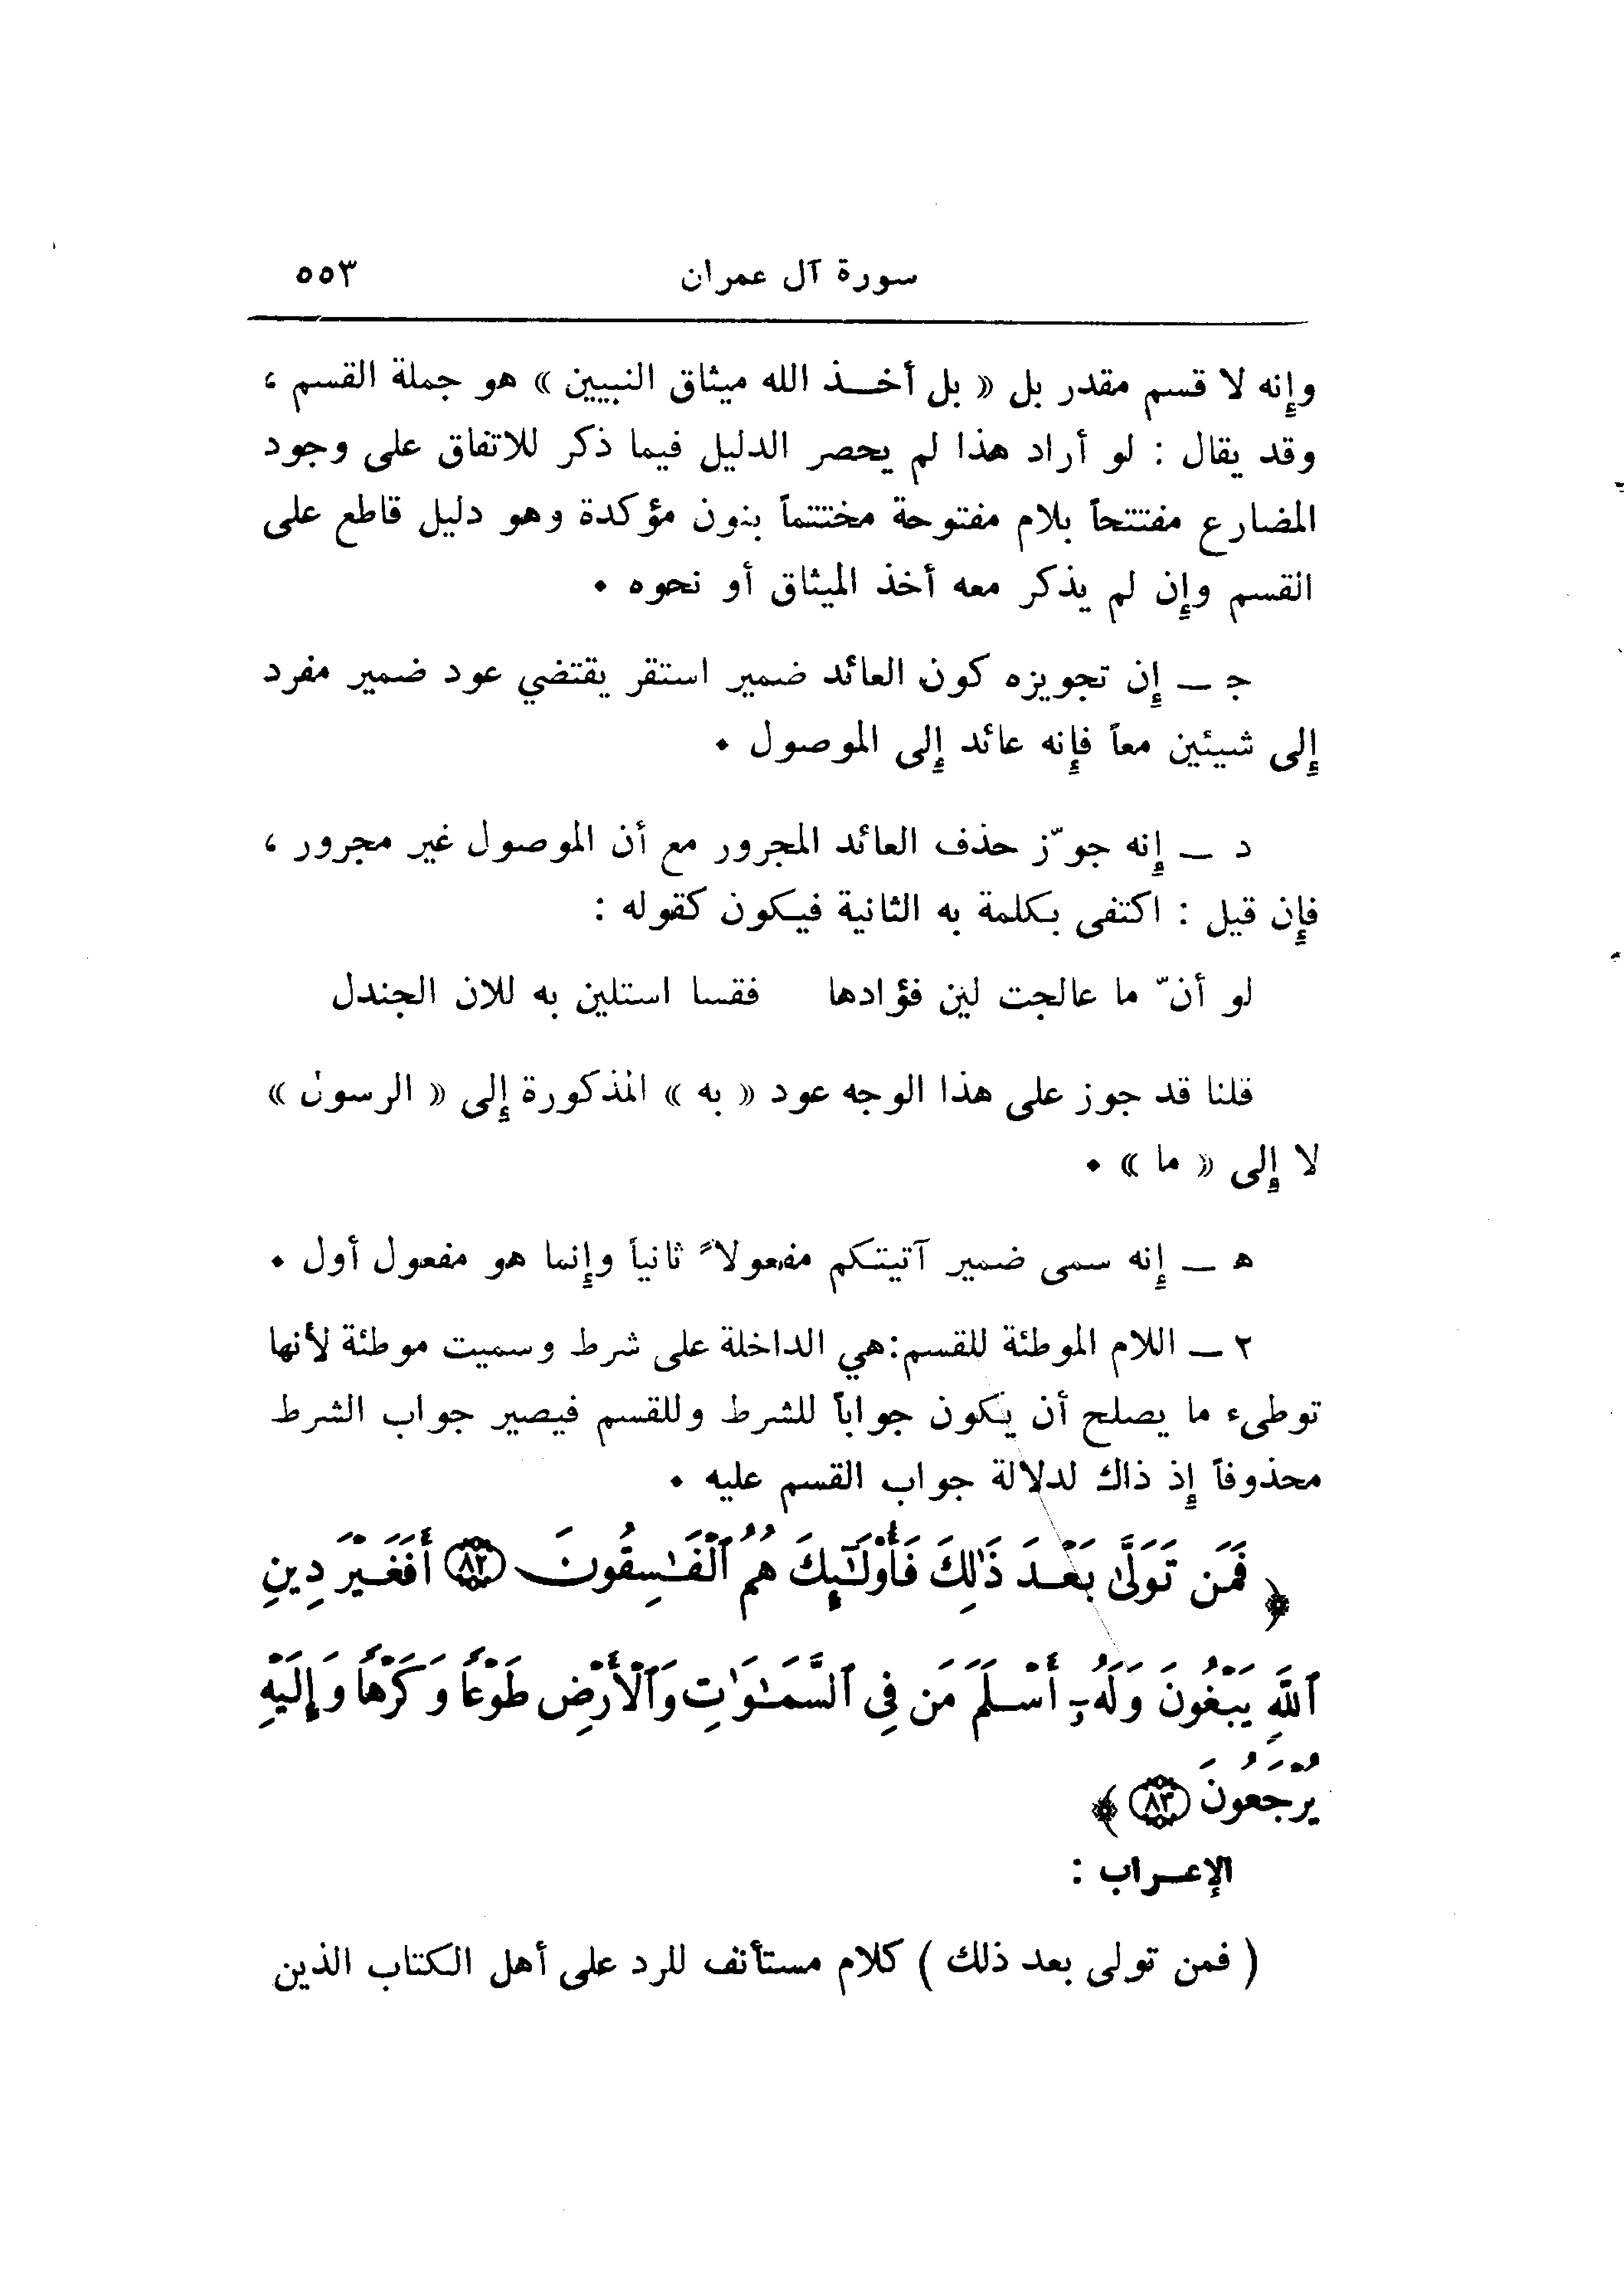 سورة آل عمران ٥٥٣
وإنه لا قسم مقدر بل « بل أخــذ الله ميثاق النبيين » هو جملة القسم ،
وقد يقال : لو أراد هذا لم يحصر الدليل فيما ذكر للاتفاق على وجود
المضارع مفتتحاً بلام مفتوحة مختتماً بنون مؤكدة وهو دليل قاطع على
القسم وإن لم يذكر معه أخذ الميثاق أو نحوه ٠
جـ ــ إن تجويزه كون العائد ضمير استقر يقتضي عود ضمير مفرد
إلى شيئين معاً فإنه عائد إلى الموصول ٠
د ــ إنه جوّز حذف العائد المجرور مع أن الموصول غير مجرور ،
فإن قيل : اكتفى بكلمة به الثانية فيكون كقوله :
لو أنّ ما عالجت لين فؤادها فقسا استلين به للان الجندل
قلنا قد جوز على هذا الوجه عود « به » المذكورة إلى « الرسول »
لا إلى « ما » ٠
هـ ــ إنه سمى ضمير آتيتكم مفعولاً ثانياً وإنما هو مفعول أول ٠
٢ ــ اللام الموطئة للقسم:هي الداخلة على شرط وسميت موطئة لأنها
توطىء ما يصلح أن يكون جواباً للشرط وللقسم فيصير جواب الشرط
محذوفاً إذ ذاك لدلالة جواب القسم عليه ٠
﴿ فَمَن تَوَلَّىٰ بَعْدَ ذَٰلِكَ فَأُوْلَـٰٓئِكَ هُمُ ٱلْفَـٰسِقُونَ ﴿٨٢﴾ أَفَغَيْرَ دِينِ
ٱللَّهِ يَبْغُونَ وَلَهُۥٓ أَسْلَمَ مَن فِى ٱلسَّمَـٰوَٰتِ وَٱلْأَرْضِ طَوْعًا وَكَرْهًا وَإِلَيْهِ
يُرْجَعُونَ ﴿٨٣﴾ ﴾
الإعــراب :
( فمن تولى بعد ذلك ) كلام مستأنف للرد على أهل الكتاب الذين